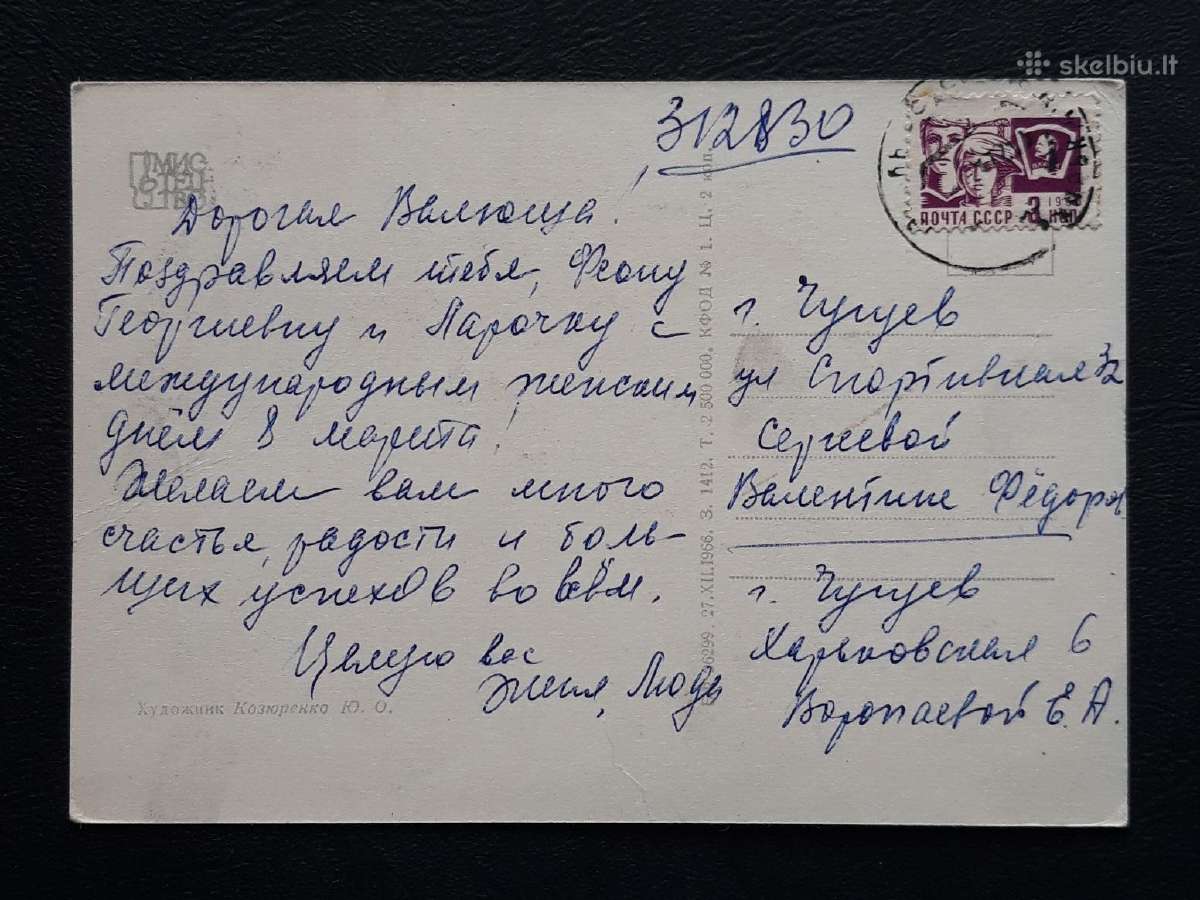 skelbiu.lt
312830
МИС
ПОЧТА СССР 3 КОП
Дорогая Валюша!
Поздравляем тебя, Феону
Георгиевну и Ларочку с
международным женским
днём 8 марта!
Желаем вам много
счастья, радости и боль-
ших успехов во всём.
Целую вас
Женя, Люда
Художник Козюренко Ю. О.
96299. 27.XII.1966. З. 1412. Т. 2 500 000. КФОД № 1. Ц. 2 коп
г. Чугуев
ул Спортивная 32
Сергеевой
Валентине Фёдор
г. Чугуев
Харьковская 6
Воропаевой Е. А.